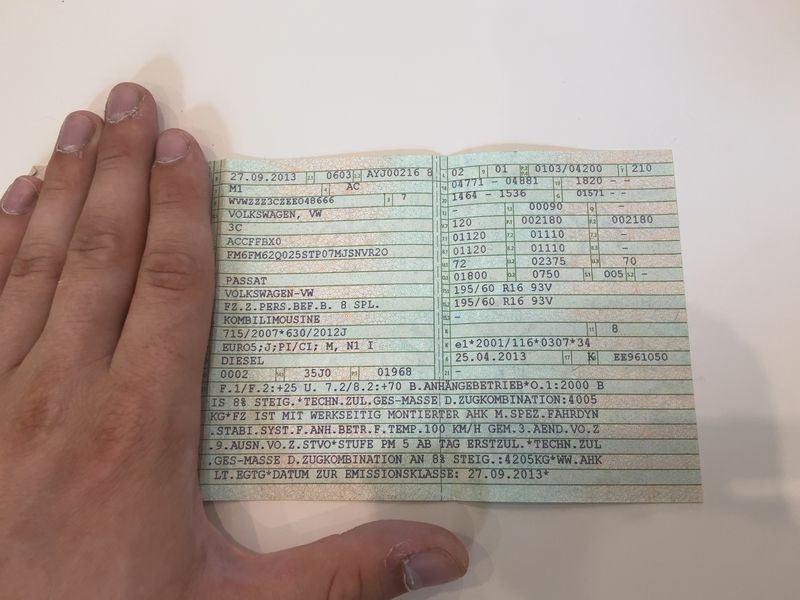 27.09.2013 0603 AYJ00216 8
M1 AC
WVWZZZ3CZEE048666 7
VOLKSWAGEN, VW
3C
ACCFFBX0
FM6FM62Q025STP07MJSNVR2O
PASSAT
VOLKSWAGEN-VW
FZ.Z.PERS.BEF.B. 8 SPL.
KOMBILIMOUSINE
715/2007*630/2012J
EURO5;J;PI/CI; M, N1 I
DIESEL
0002 35J0 01968
02 01 0103/04200 210
04771 - 04881 1820 - -
1464 - 1536 01571 - -
- 00090 -
120 002180 002180
01120 01110 -
01120 01110 -
72 02375 70
01800 0750 005 -
195/60 R16 93V
195/60 R16 93V
-
8
e1*2001/116*0307*34
25.04.2013 K EE961050
-
F.1/F.2:+25 U. 7.2/8.2:+70 B.ANHÄNGEBETRIEB*O.1:2000 B
IS 8% STEIG.*TECHN.ZUL.GES-MASSE D.ZUGKOMBINATION:4005
KG*FZ IST MIT WERKSEITIG MONTIERTER AHK M.SPEZ.FAHRDYN
.STABI.SYST.F.ANH.BETR.F.TEMP.100 KM/H GEM.3.AEND.VO.Z
.9.AUSN.VO.Z.STVO*STUFE PM 5 AB TAG ERSTZUL.*TECHN.ZUL
.GES-MASSE D.ZUGKOMBINATION AN 8% STEIG.:4205KG*WW.AHK
LT.EGTG*DATUM ZUR EMISSIONSKLASSE: 27.09.2013*